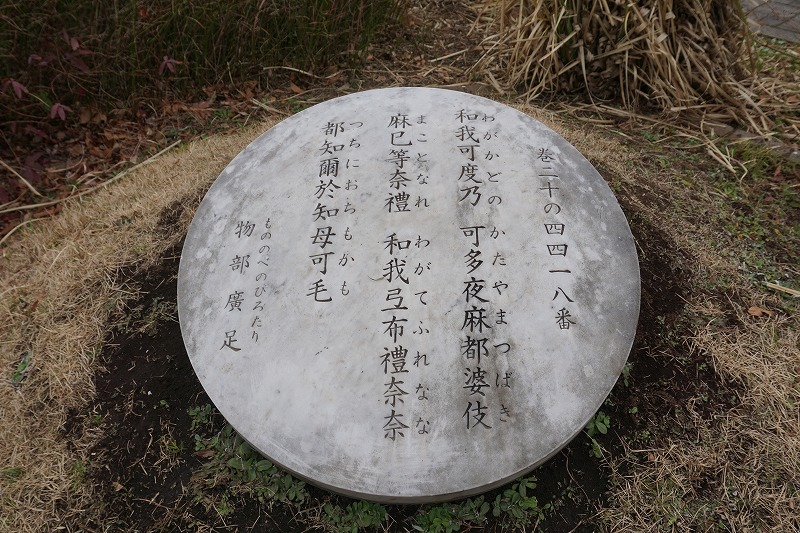 巻二十の四四一八番
わがかどの かたやまつばき
和我可度乃 可多夜麻都婆伎
まことなれ わがてふれなな
麻已等奈禮 和我弖布禮奈奈
つちにおちもかも
都知爾於知母可毛
もののべのひろたり
物部廣足